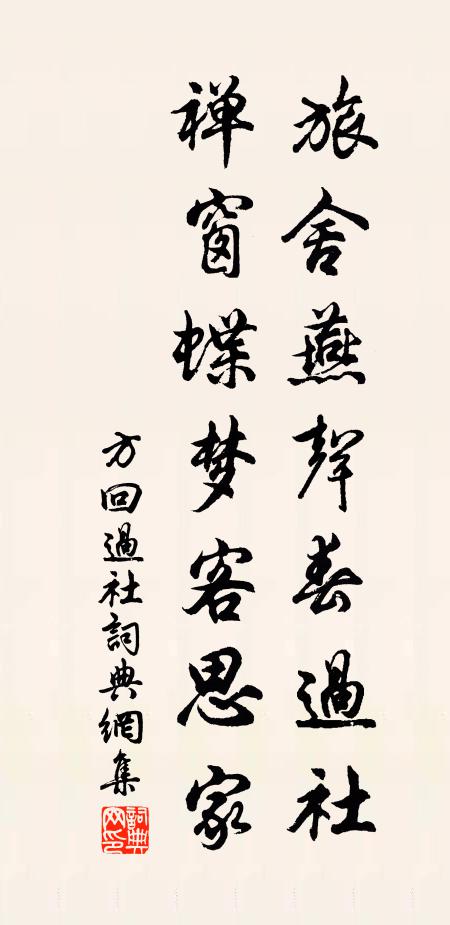 旅舍燕聲春過社
禅窗蝶梦客思家
方回過社詞典網集
詞典網印